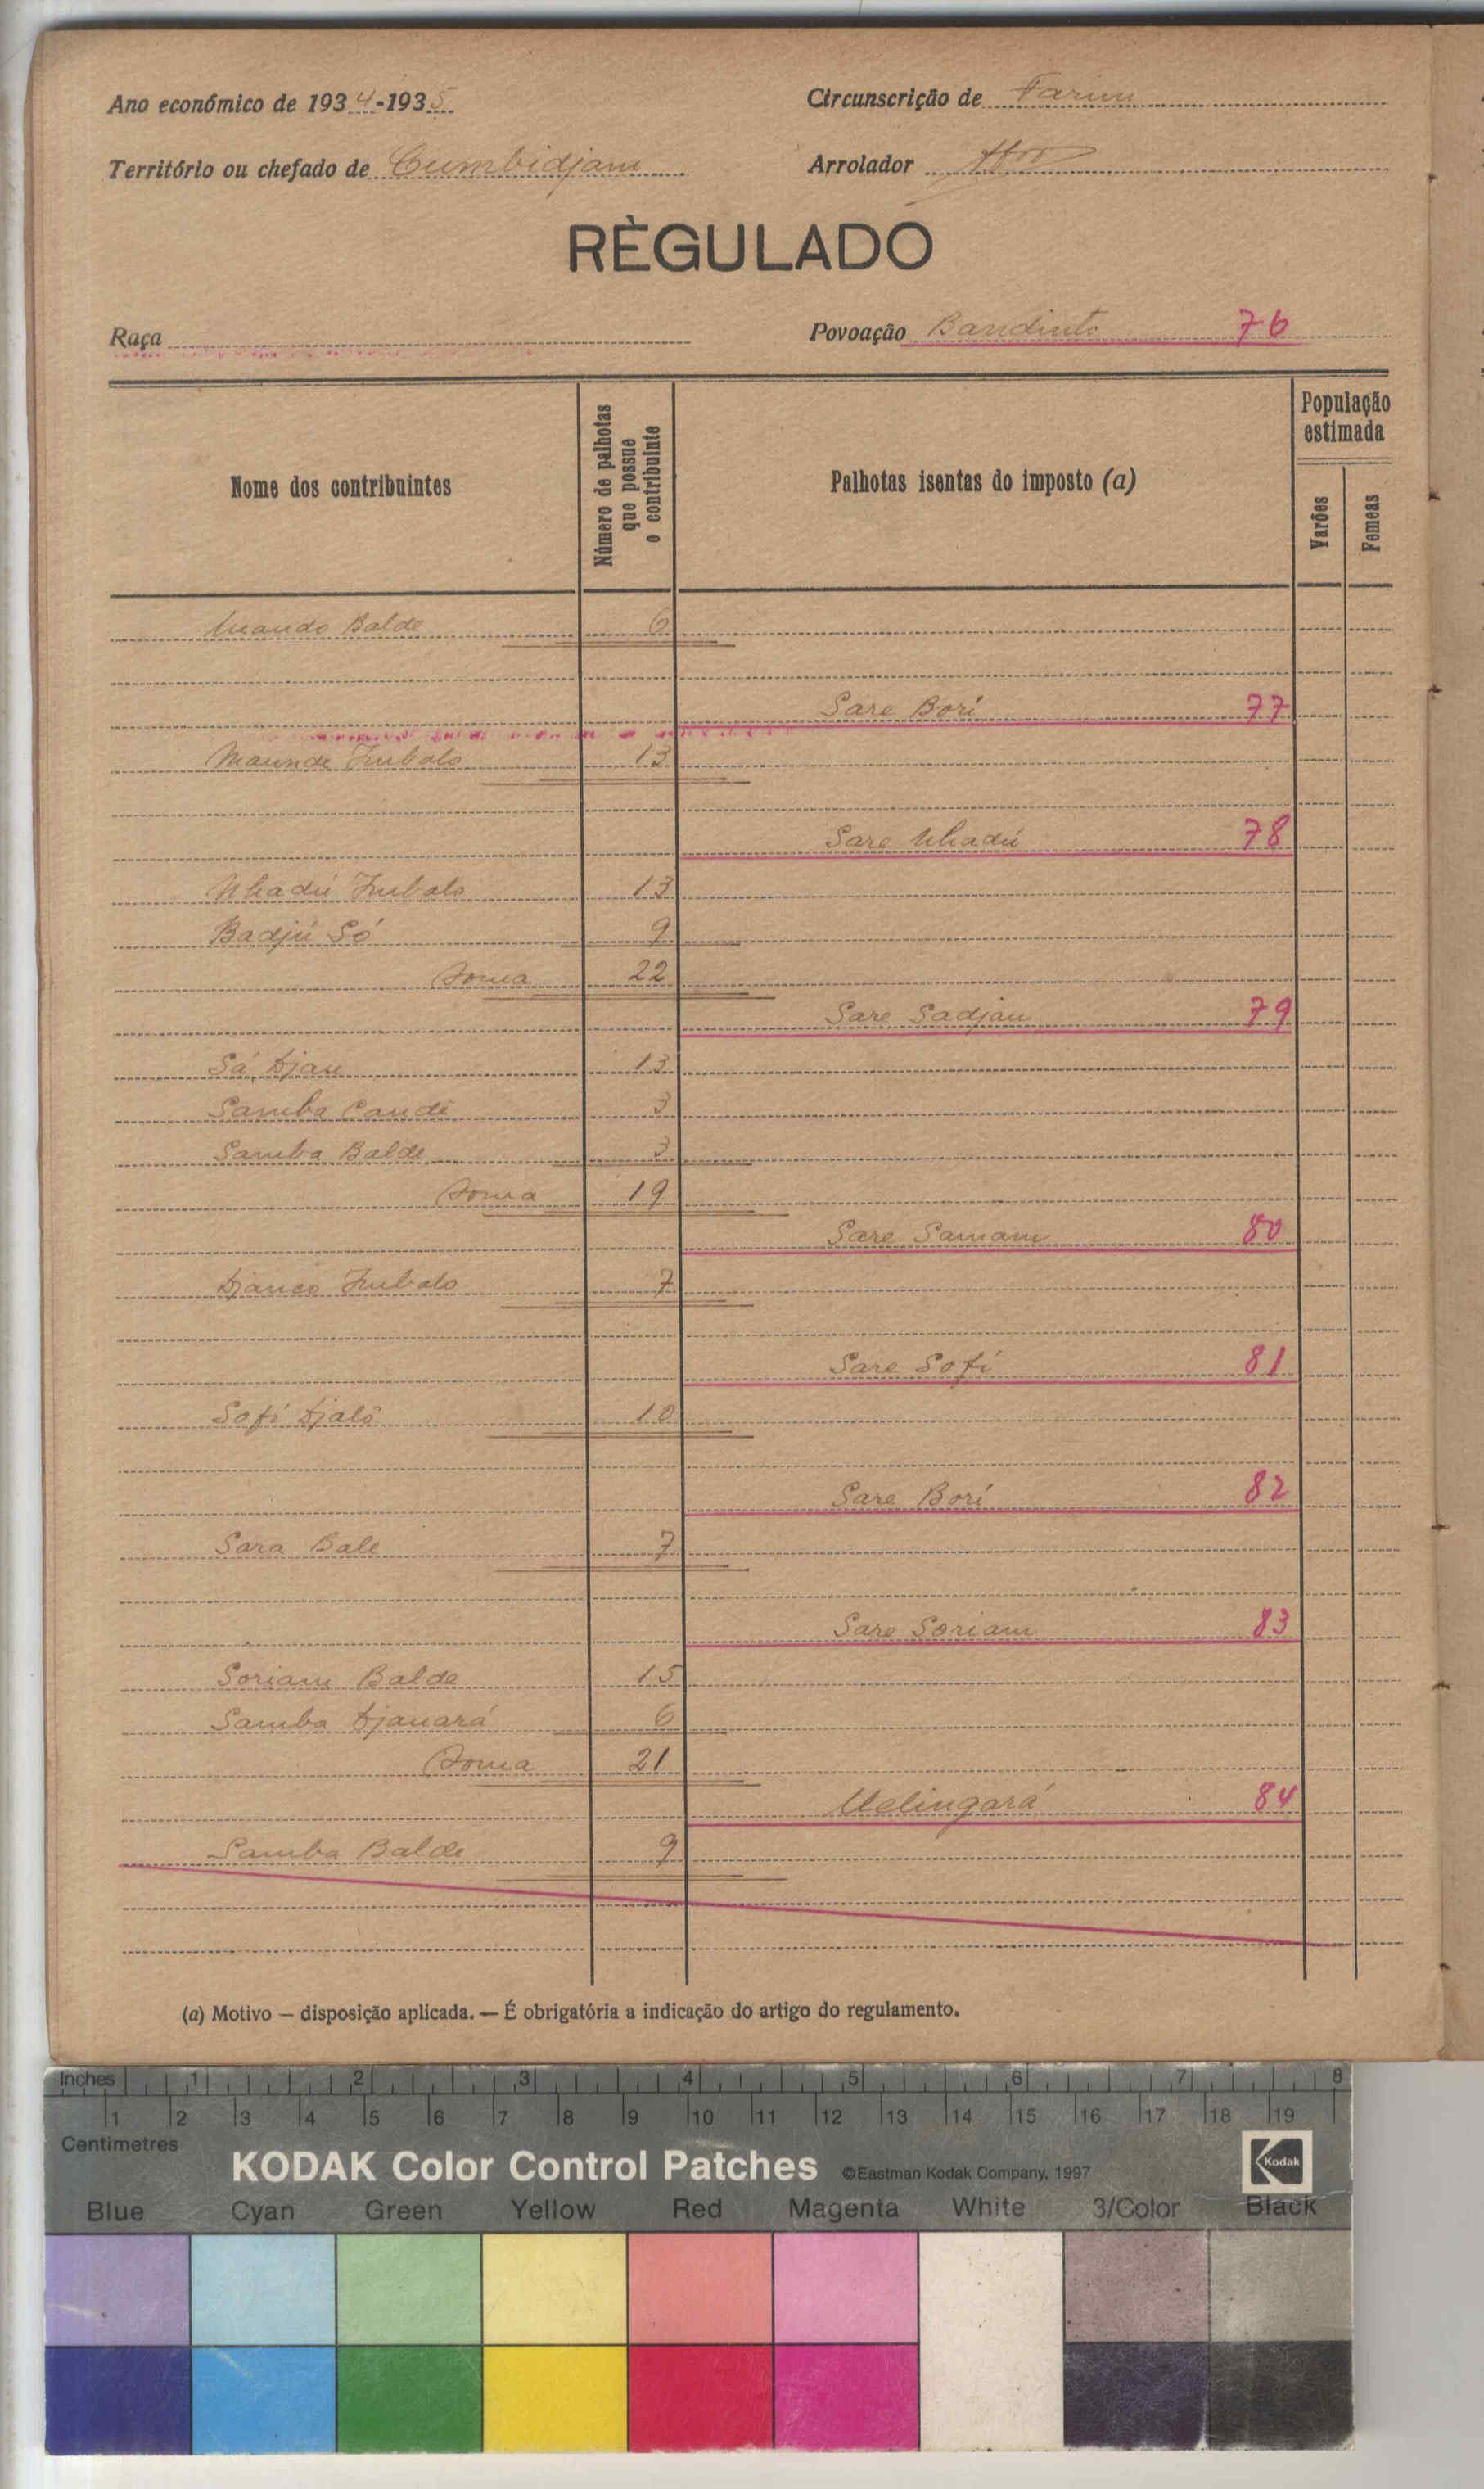 Ano económico de 1934-1935
Circunscrição de Farim
Território ou chefado de Cumbidjam
Arrolador
RÈGULADO
Raça
Povoação Bandinto 76
Nome dos contribuintes
Número de palhotas que possue o contribuinte
Palhotas isentas do imposto (a)
População estimada
Varões
Femeas
Balde 6
Sare Bori 77
Maunde Embalo 13
Sare Nhadú 78
Nhadú Embalo 13
Badjú Só 9
Soma 22
Sare Sadjau 79
Sá Djau 13
Samba Candé 3
Samba Balde 3
Soma 19
Sare Samam 80
Djanco Embalo 7
Sare Sofi 81
Sofi Djaló 10
Sare Bori 82
Sara Bale 7
Sare Soriam 83
Soriam Balde 15
Samba Djauará 6
Soma 21
Uelingará 84
Samba Balde 9
(a) Motivo — disposição aplicada. — É obrigatória a indicação do artigo do regulamento.
Inches 1 2 3 4 5 6 7 8
1 2 3 4 5 6 7 8 9 10 11 12 13 14 15 16 17 18 19
Centimetres
KODAK Color Control Patches ©Eastman Kodak Company, 1997 Kodak
Blue Cyan Green Yellow Red Magenta White 3/Color Black